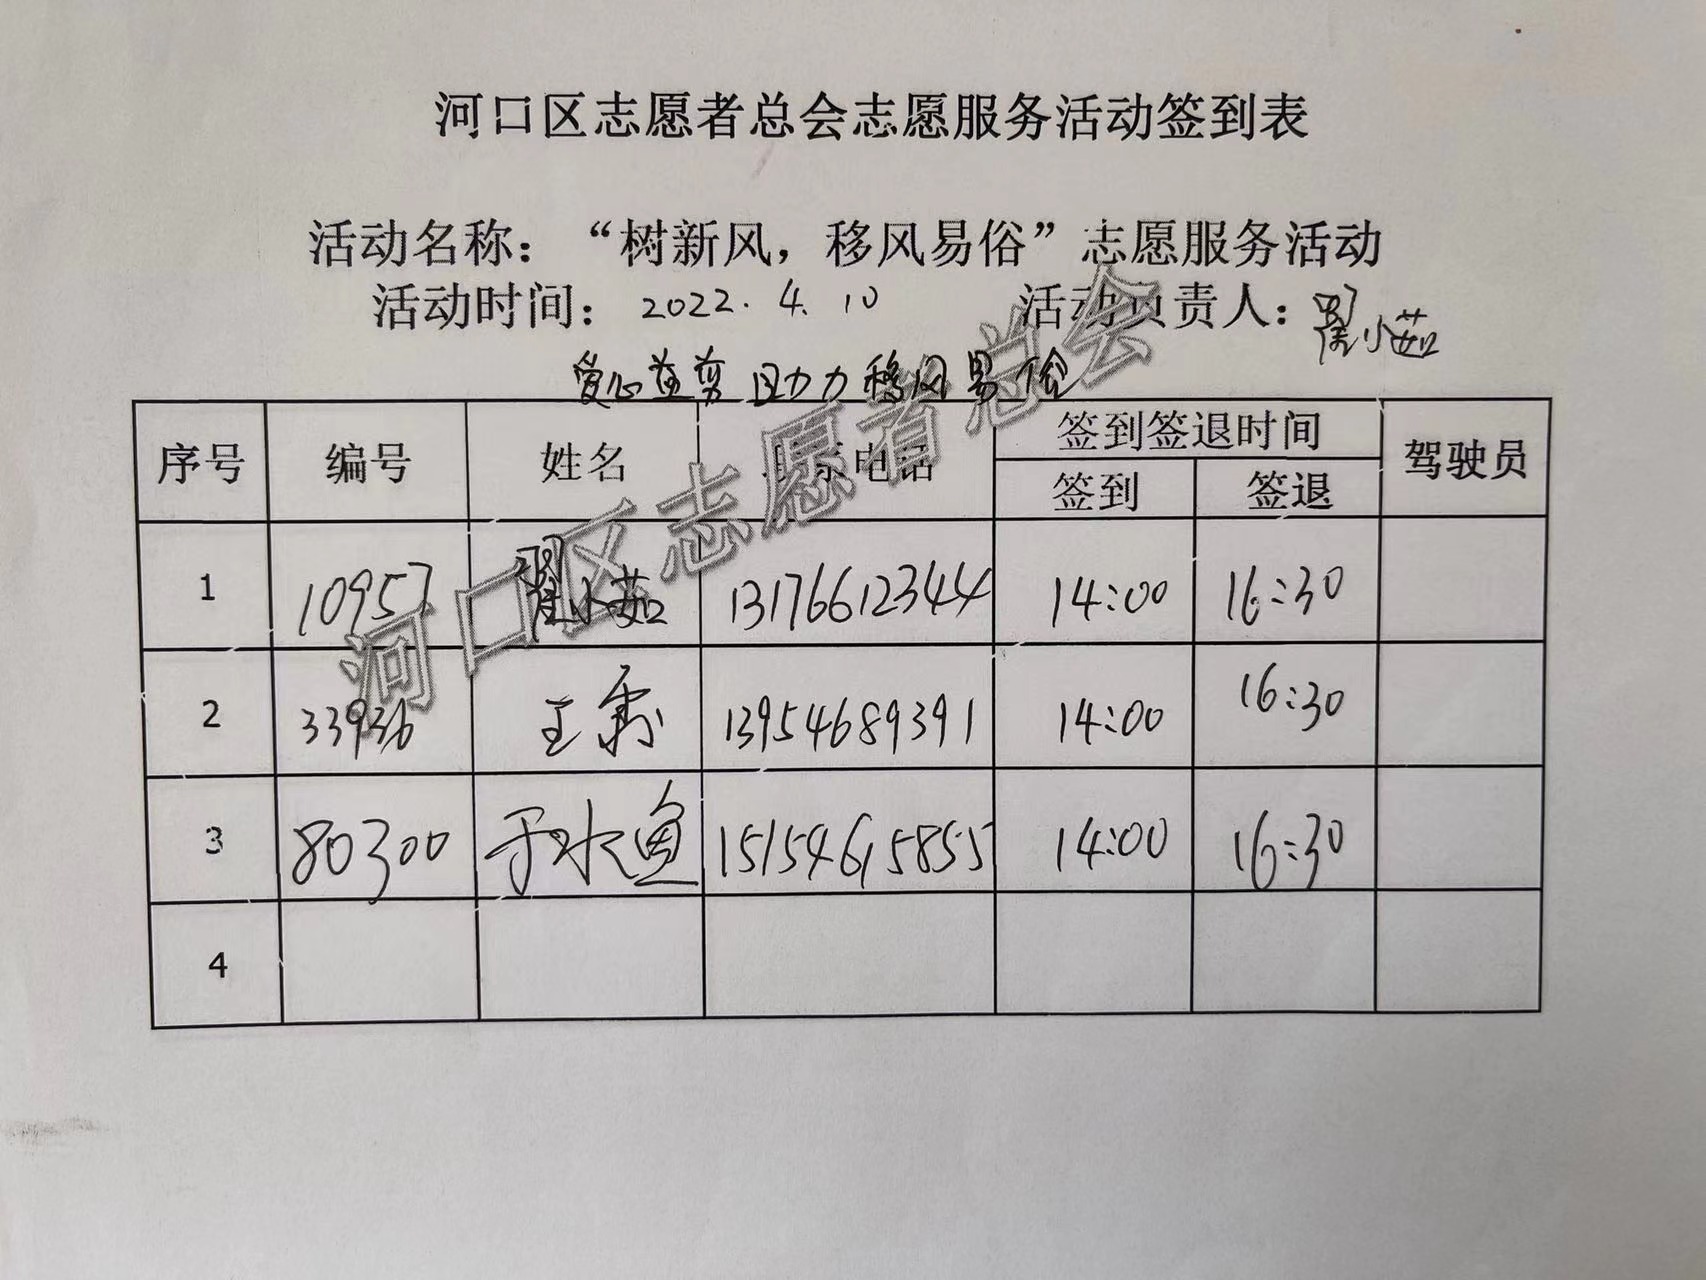 河口区志愿者总会志愿服务活动签到表
活动名称：“树新风，移风易俗”志愿服务活动
活动时间：2022.4.10 活动负责人：翟小茹
爱心益剪 助力移风易俗
序号 编号 姓名 联系电话 签到签退时间 驾驶员
签到 签退
1 10957 翟小茹 13176612344 14:00 16:30
2 33936 王 13954689391 14:00 16:30
3 80300 于水渔 15154615855 14:00 16:30
4
河口区志愿者总会